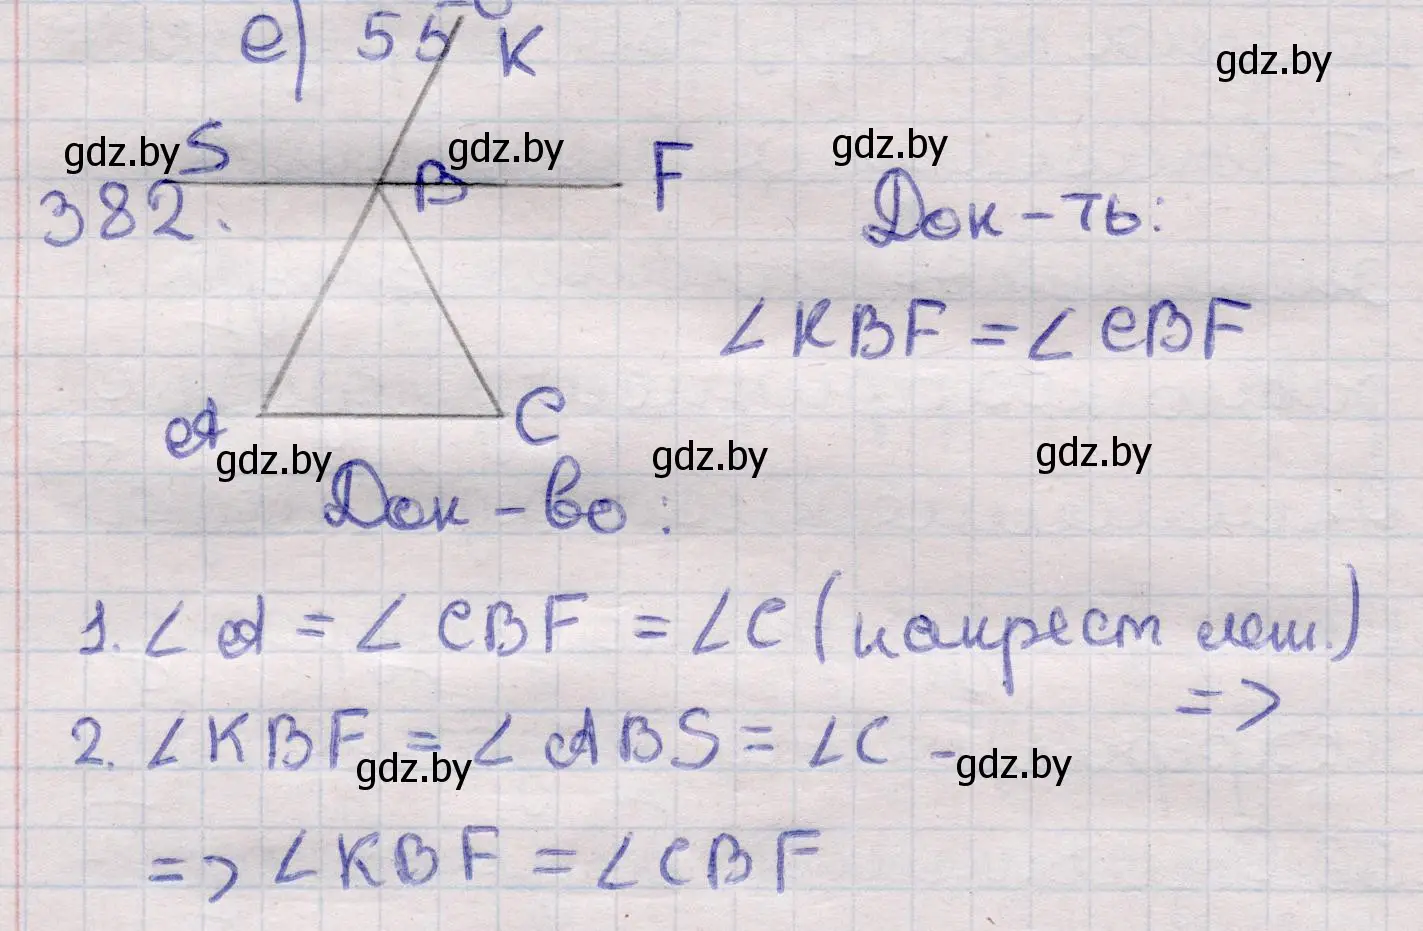 е) 55° K
gdz.by
gdz.by S gdz.by gdz.by
382. B F Док-ть:
∠KBF = ∠CBF
A C
gdz.by gdz.by gdz.by
Док-во:
1. ∠A = ∠CBF = ∠C (накрест леж.)
=>
2. ∠KBF = ∠ABS = ∠C -
gdz.by gdz.by
=> ∠KBF = ∠CBF